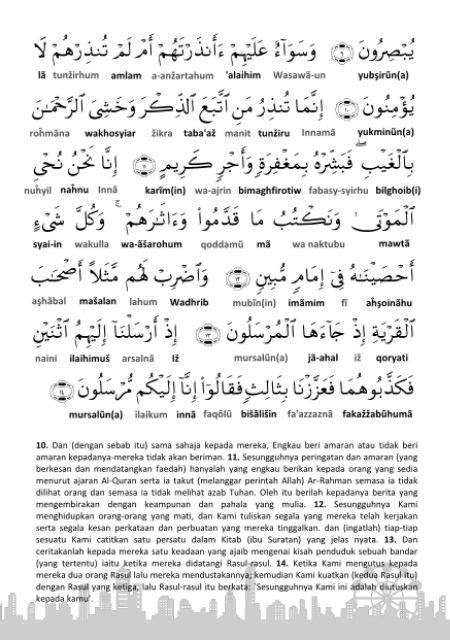 يُبْصِرُونَ ٩ وَسَوَآءٌ عَلَيْهِمْ ءَأَنذَرْتَهُمْ أَمْ لَمْ تُنذِرْهُمْ لَا
lā tunžirhum amlam a-anžartahum 'alaihim Wasawā-un yubṣirūn(a)
يُؤْمِنُونَ ١٠ إِنَّمَا تُنذِرُ مَنِ ٱتَّبَعَ ٱلذِّكْرَ وَخَشِىَ ٱلرَّحْمَـٰنَ
roḥmāna wakhosyiar žikra taba'až manit tunžiru Innamā yukminūn(a)
بِٱلْغَيْبِ ۖ فَبَشِّرْهُ بِمَغْفِرَةٍ وَأَجْرٍ كَرِيمٍ ١١ إِنَّا نَحْنُ نُحْىِ
nuḥyil naḥnu Innā karīm(in) wa-ajrin bimaghfirotiw fabasy-syirhu bilghoib(i)
ٱلْمَوْتَىٰ وَنَكْتُبُ مَا قَدَّمُوا۟ وَءَاثَـٰرَهُمْ ۚ وَكُلَّ شَىْءٍ
syai-in wakulla wa-āšarohum qoddamū mā wa naktubu mawtā
أَحْصَيْنَـٰهُ فِىٓ إِمَامٍ مُّبِينٍ ١٢ وَٱضْرِبْ لَهُم مَّثَلًا أَصْحَـٰبَ
aṣhābal mašalan lahum Wadhrib mubīn(in) imāmim fī aḥṣoināhu
ٱلْقَرْيَةِ إِذْ جَآءَهَا ٱلْمُرْسَلُونَ ١٣ إِذْ أَرْسَلْنَآ إِلَيْهِمُ ٱثْنَيْنِ
naini ilaihimuš arsalnā Iž mursalūn(a) jā-ahal iž qoryati
فَكَذَّبُوهُمَا فَعَزَّزْنَا بِثَالِثٍ فَقَالُوٓا۟ إِنَّآ إِلَيْكُم مُّرْسَلُونَ ١٤
mursalūn(a) ilaikum innā faqōlū bišālišin fa'azzaznā fakažžabūhumā
10. Dan (dengan sebab itu) sama sahaja kepada mereka, Engkau beri amaran atau tidak beri
amaran kepadanya-mereka tidak akan beriman. 11. Sesungguhnya peringatan dan amaran (yang
berkesan dan mendatangkan faedah) hanyalah yang engkau berikan kepada orang yang sedia
menurut ajaran Al-Quran serta ia takut (melanggar perintah Allah) Ar-Rahman semasa ia tidak
dilihat orang dan semasa ia tidak melihat azab Tuhan. Oleh itu berilah kepadanya berita yang
mengembirakan dengan keampunan dan pahala yang mulia. 12. Sesungguhnya Kami
menghidupkan orang-orang yang mati, dan Kami tuliskan segala yang mereka telah kerjakan
serta segala kesan perkataan dan perbuatan yang mereka tinggalkan. dan (ingatlah) tiap-tiap
sesuatu Kami catitkan satu persatu dalam Kitab (ibu Suratan) yang jelas nyata. 13. Dan
ceritakanlah kepada mereka satu keadaan yang ajaib mengenai kisah penduduk sebuah bandar
(yang tertentu) iaitu ketika mereka didatangi Rasul-rasul. 14. Ketika Kami mengutus kepada
mereka dua orang Rasul lalu mereka mendustakannya; kemudian Kami kuatkan (kedua Rasul itu)
dengan Rasul yang ketiga, lalu Rasul-rasul itu berkata: `Sesungguhnya Kami ini adalah diutuskan
kepada kamu`.